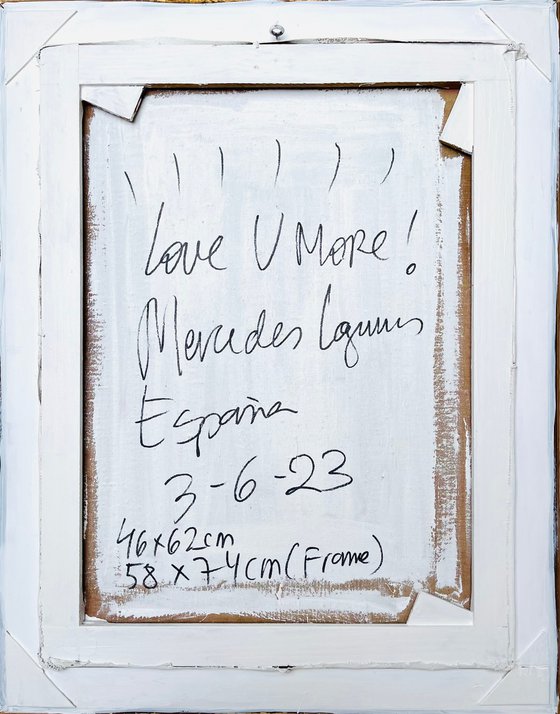 Love U MORE!
Mercedes Lagunas
España
3-6-23
46x62cm
58x74cm (Frame)